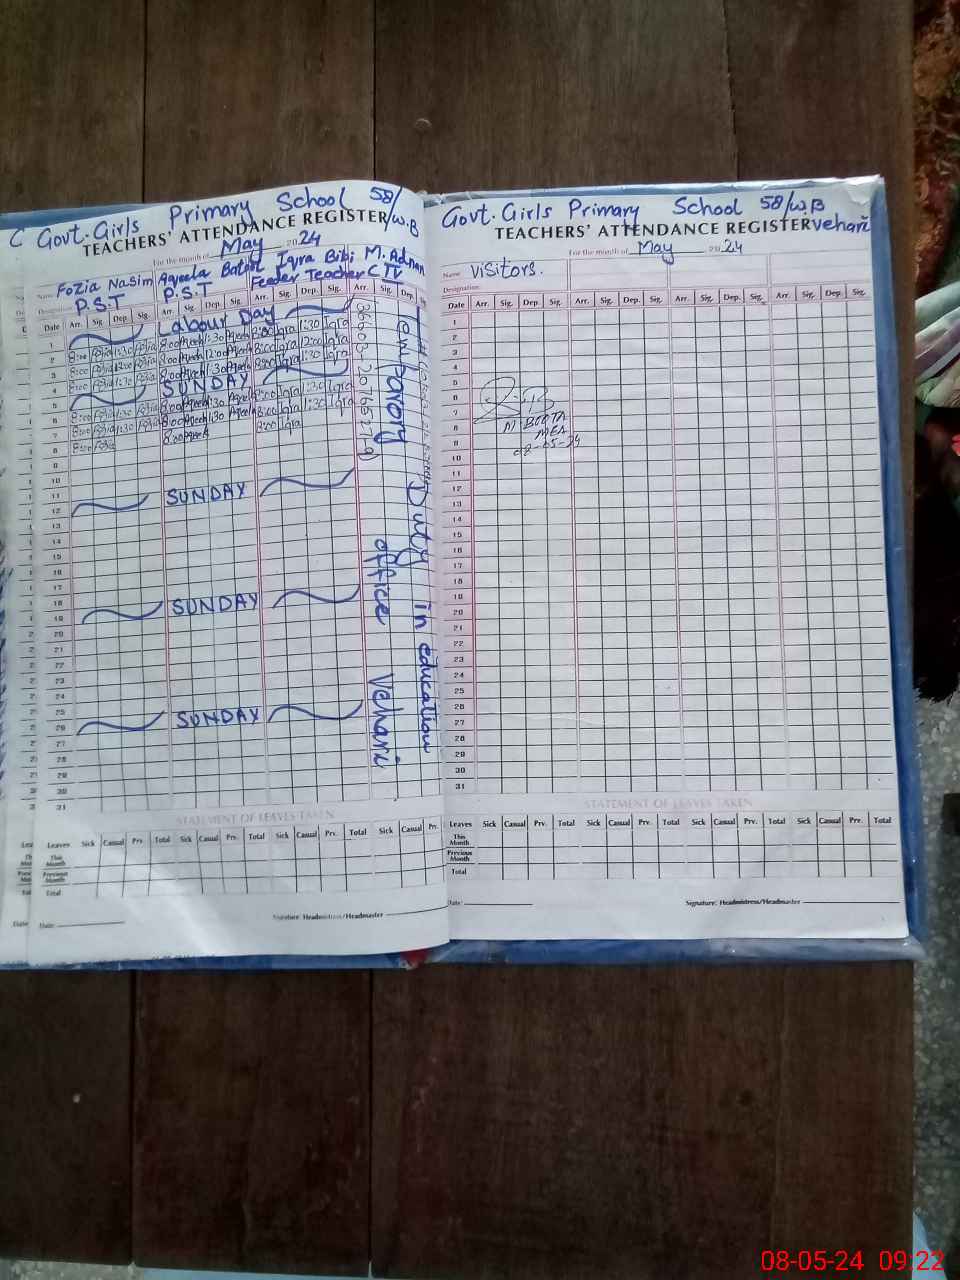 Govt. Girls Primary School 58/W.B
TEACHERS' ATTENDANCE REGISTER
For the month of May 2024
Name Fozia Nasim Aqeela Batool Iqra Bibi M. Adnan
Designation P.S.T P.S.T Feeder Teacher C IV
Date Arr. Sig. Dep. Sig. Arr. Sig. Dep. Sig. Arr. Sig. Dep. Sig. Arr. Sig. Dep. Sig.
1 Labour Day
2 8:00 Fozia 1:30 Fozia 8:00 Aqeela 1:30 Aqeela 8:00 Iqra 1:30 Iqra
3 8:00 Fozia 12:00 Fozia 8:00 Aqeela 12:00 Aqeela 8:00 Iqra 12:00 Iqra
4 8:00 Fozia 1:30 Fozia 8:00 Aqeela 1:30 Aqeela 8:00 Iqra 1:30 Iqra
5 SUNDAY
6 8:00 Fozia 1:30 Fozia 8:00 Aqeela 1:30 Aqeela 8:00 Iqra 1:30 Iqra
7 8:00 Fozia 1:30 Fozia 8:00 Aqeela 1:30 Aqeela 8:00 Iqra 1:30 Iqra
8 8:00 Fozia 8:00 Aqeela 8:00 Iqra
9
10
11
12 SUNDAY
13
14
15
16
17
18
19 SUNDAY
20
21
22
23
24
25
26 SUNDAY
27
28
29
30
31
Temporory Duty in education
office Vehari
STATEMENT OF LEAVES TAKEN
Leaves Sick Casual Prv. Total Sick Casual Prv. Total Sick Casual Prv. Total Sick Casual Prv.
This Month
Previous Month
Total
Date: Signature: Headmistress/Headmaster
Govt. Girls Primary School 58/W.B
TEACHERS' ATTENDANCE REGISTER Vehari
For the month of May 2024
Name Visitors.
Designation:
Date Arr. Sig. Dep. Sig. Arr. Sig. Dep. Sig. Arr. Sig. Dep. Sig. Arr. Sig. Dep. Sig.
1
2
3
4
5
6
7
8
9
10
11
12
13
14
15
16
17
18
19
20
21
22
23
24
25
26
27
28
29
30
31
M. BOOTA
MEA
08-05-24
STATEMENT OF LEAVES TAKEN
Leaves Sick Casual Prv. Total Sick Casual Prv. Total Sick Casual Prv. Total Sick Casual Prv. Total
This Month
Previous Month
Total
Date: Signature: Headmistress/Headmaster
08-05-24 09:22